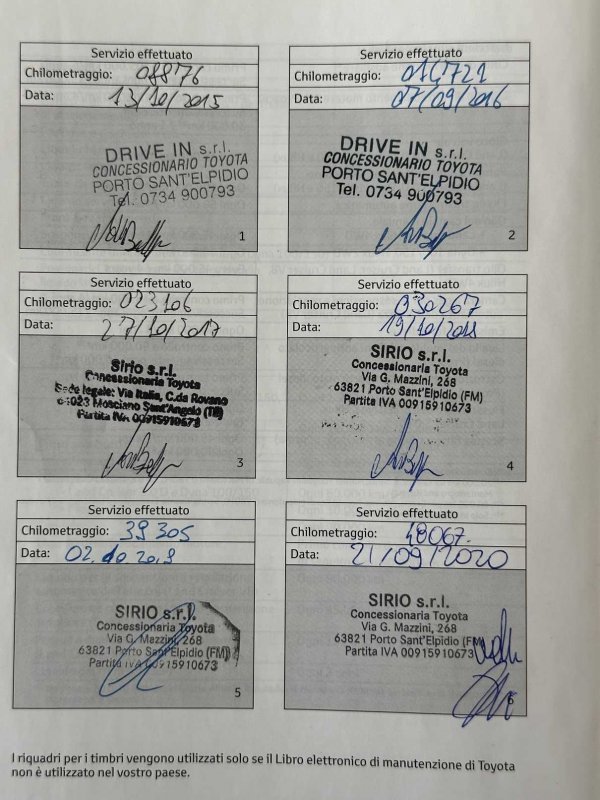 Servizio effettuato
Chilometraggio: 08876
Data: 13/10/2015
DRIVE IN s.r.l.
CONCESSIONARIO TOYOTA
PORTO SANT'ELPIDIO
Tel. 0734 900793
1
Servizio effettuato
Chilometraggio: 016721
Data: 07/09/2016
DRIVE IN s.r.l.
CONCESSIONARIO TOYOTA
PORTO SANT'ELPIDIO
Tel. 0734 900793
2
Servizio effettuato
Chilometraggio: 023106
Data: 27/10/2017
Sirio s.r.l.
Concessionaria Toyota
Sede legale: Via Italia, C.da Rovano
64023 Mosciano Sant'Angelo (TE)
Partita IVA 00915910673
3
Servizio effettuato
Chilometraggio: 030267
Data: 19/10/2018
SIRIO s.r.l.
Concessionaria Toyota
Via G. Mazzini, 268
63821 Porto Sant'Elpidio (FM)
Partita IVA 00915910673
4
Servizio effettuato
Chilometraggio: 39305
Data: 02.10.2019
SIRIO s.r.l.
Concessionaria Toyota
Via G. Mazzini, 268
63821 Porto Sant'Elpidio (FM)
Partita IVA 00915910673
5
Servizio effettuato
Chilometraggio: 48067.
Data: 21/09/2020
SIRIO s.r.l.
Concessionaria Toyota
Via G. Mazzini, 268
63821 Porto Sant'Elpidio (FM)
Partita IVA 00915910673
6
I riquadri per i timbri vengono utilizzati solo se il Libro elettronico di manutenzione di Toyota
non è utilizzato nel vostro paese.